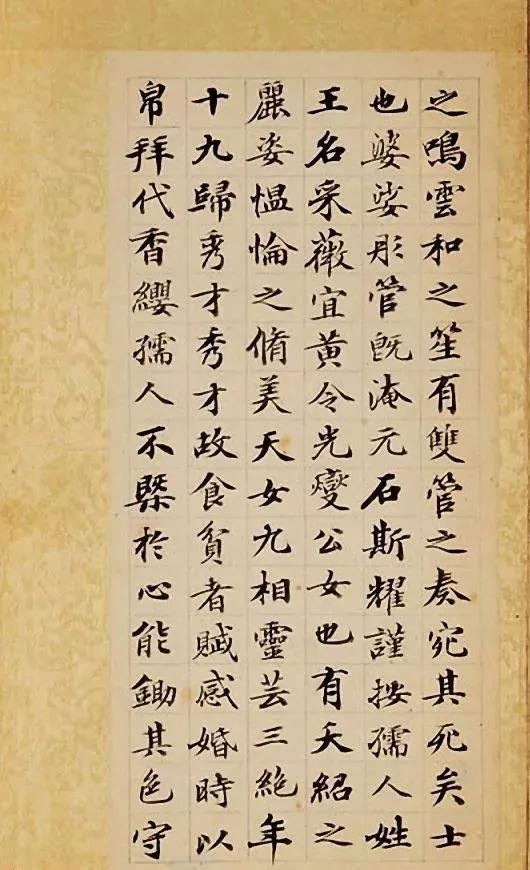 之鳴雲和之笙有雙管之奏宛其死矣士
也婆娑彤管旣淹元石斯耀謹按孺人姓
王名采薇宜黃令光燮公女也有夭紹之
麗姿愠惀之脩美天女九相靈芸三絕年
十九歸秀才秀才故食貧者賦感婚時以
帛拜代香纓孺人不槩於心能鋤其色守